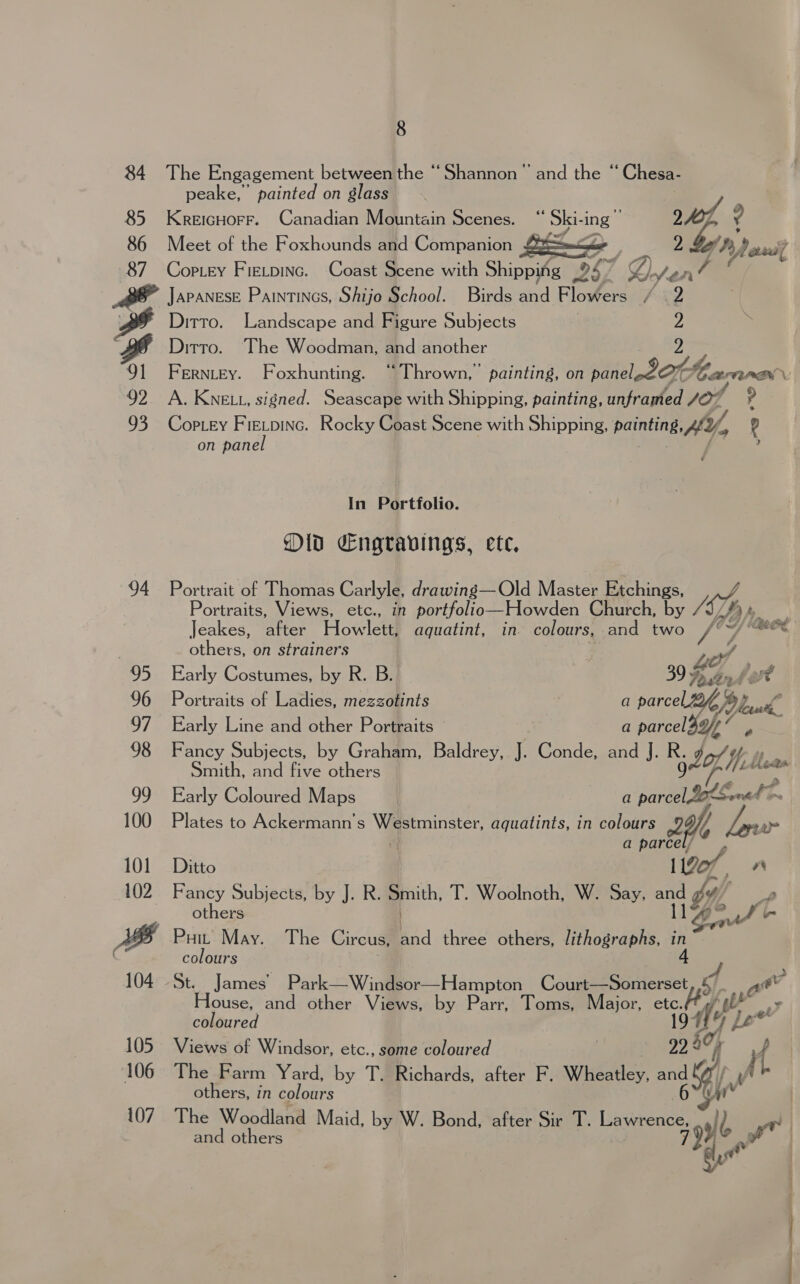 8
84 The Engagement between the “Shannon” and the “Chesa-
peake,” painted on glass
85 KREIGHOFF. Canadian Mountain Scenes. “Ski-ing” 2
86 Meet of the Foxhounds and Companion 2
87 COPLEY FIELDING. Coast Scene with Shipping
JAPANESE PAINTINGS, Shijo School. Birds and Flowers 2
DITTO. Landscape and Figure Subjects 2
DITTO. The Woodman, and another 2
91 FERNLEY. Foxhunting. “Thrown,” painting, on panel
92 A. KNELL, signed. Seascape with Shipping, painting, unframed
93 COPLEY FIELDING. Rocky Coast Scene with Shipping, painting,
on panel
In Portfolio.
Old Engravings, etc.
94 Portrait of Thomas Carlyle, drawing—Old Master Etchings,
Portraits, Views, etc., in portfolio—Howden Church, by
Jeakes, after Howlett, aquatint, in colours, and two
others, on strainers
95 Early Costumes, by R. B. 39
96 Portraits of Ladies, mezzotints a parcel
97 Early Line and other Portraits a parcel
98 Fancy Subjects, by Graham, Baldrey, J. Conde, and J. R.
Smith, and five others 9
99 Early Coloured Maps a parcel
100 Plates to Ackermann's Westminster, aquatints, in colours
a parcel
101 Ditto 11
102 Fancy Subjects, by J. R. Smith, T. Woolnoth, W. Say, and
others 11
PHIL MAY. The Circus, and three others, lithographs, in
colours 4
104 St. James' Park—Windsor—Hampton Court—Somerset
House, and other Views, by Parr, Toms, Major, etc.
coloured 19
105 Views of Windsor, etc., some coloured 22
106 The Farm Yard, by T. Richards, after F. Wheatley, and
others, in colours 6
107 The Woodland Maid, by W. Bond, after Sir T. Lawrence,
and others 7